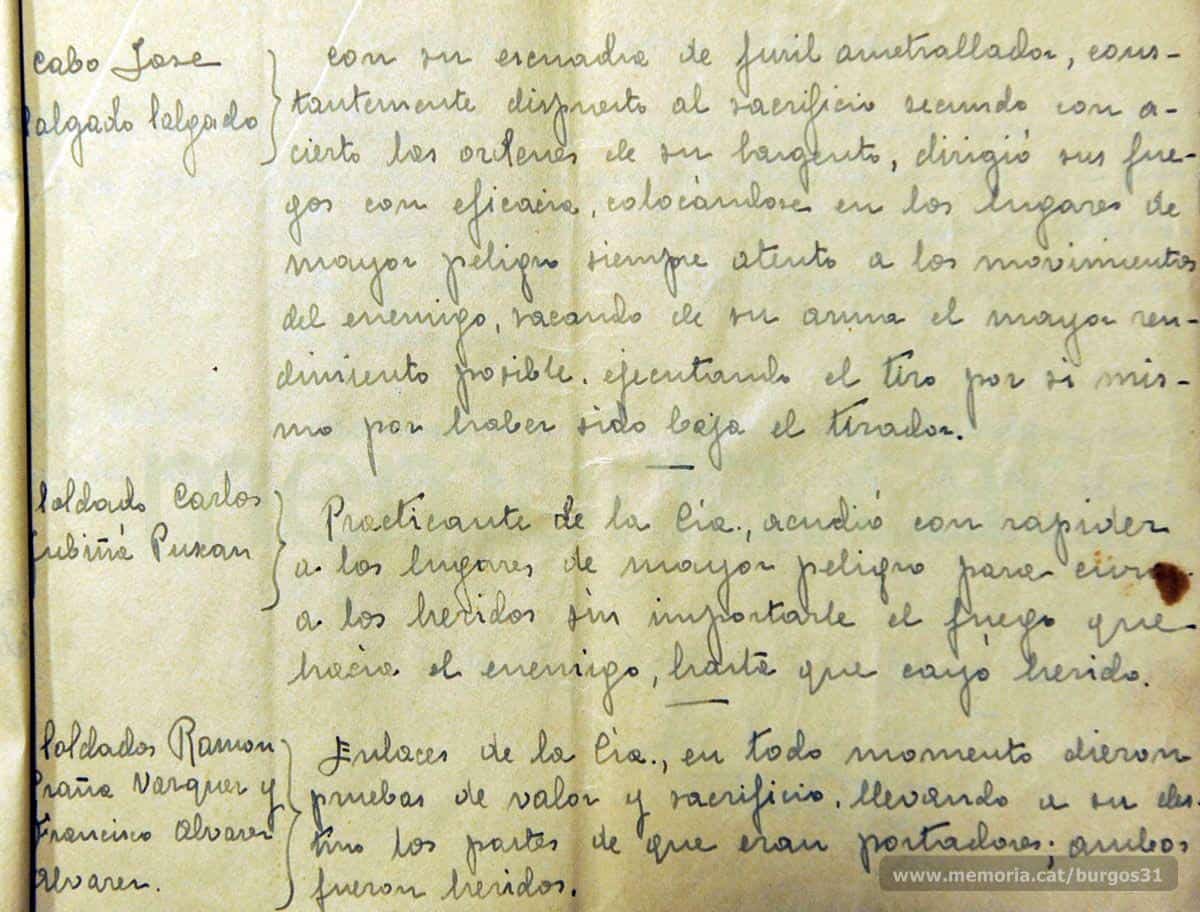 Cabo Jose
Salgado Salgado
con su escuadra de fusil ametrallador, cons-
tantemente dispuesto al sacrificio secundo con a-
cierto las ordenes de su Sargento, dirigió sus fue-
gos con eficacia, colocándose en los lugares de
mayor peligro siempre atento a los movimientos
del enemigo, sacando de su arma el mayor ren-
dimiento posible. ejecutando el tiro por si mis-
mo por haber sido baja el tirador.
Soldado Carlos
Cubiñá Puxan
Practicante de la Cía., acudió con rapidez
a los lugares de mayor peligro para curar
a los heridos sin importarle el fuego que
hacia el enemigo, hasta que cayó herido.
Soldados Ramon
Vazquez y
Francisco Alvarez
Alvarez.
Enlaces de la Cía., en todo momento dieron
pruebas de valor y sacrificio, llevando a su des-
tino los partes de que eran portadores; ambos
fueron heridos.
www.memoria.cat/burgos31